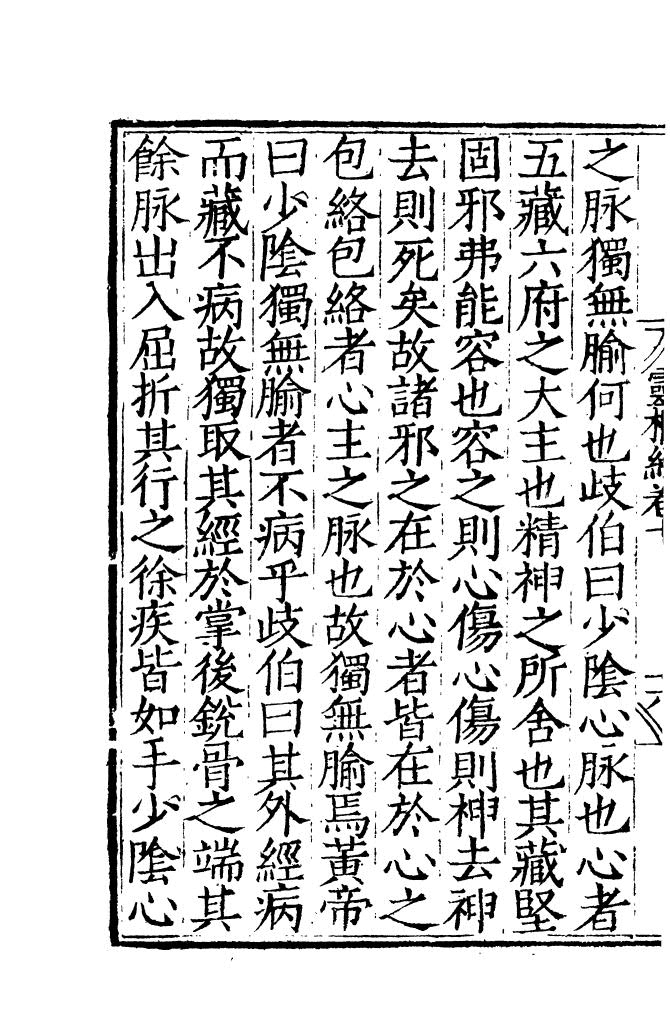 之脉獨無腧何也歧伯曰少陰心脉也心者
五藏六府之大主也精神之所舍也其藏堅
固邪弗能容也容之則心傷心傷則神去神
去則死矣故諸邪之在於心者皆在於心之
包絡包絡者心主之脉也故獨無腧焉黃帝
曰少陰獨無腧者不病乎歧伯曰其外經病
而藏不病故獨取其經於掌後銳骨之端其
餘脉出入屈折其行之徐疾皆如手少陰心